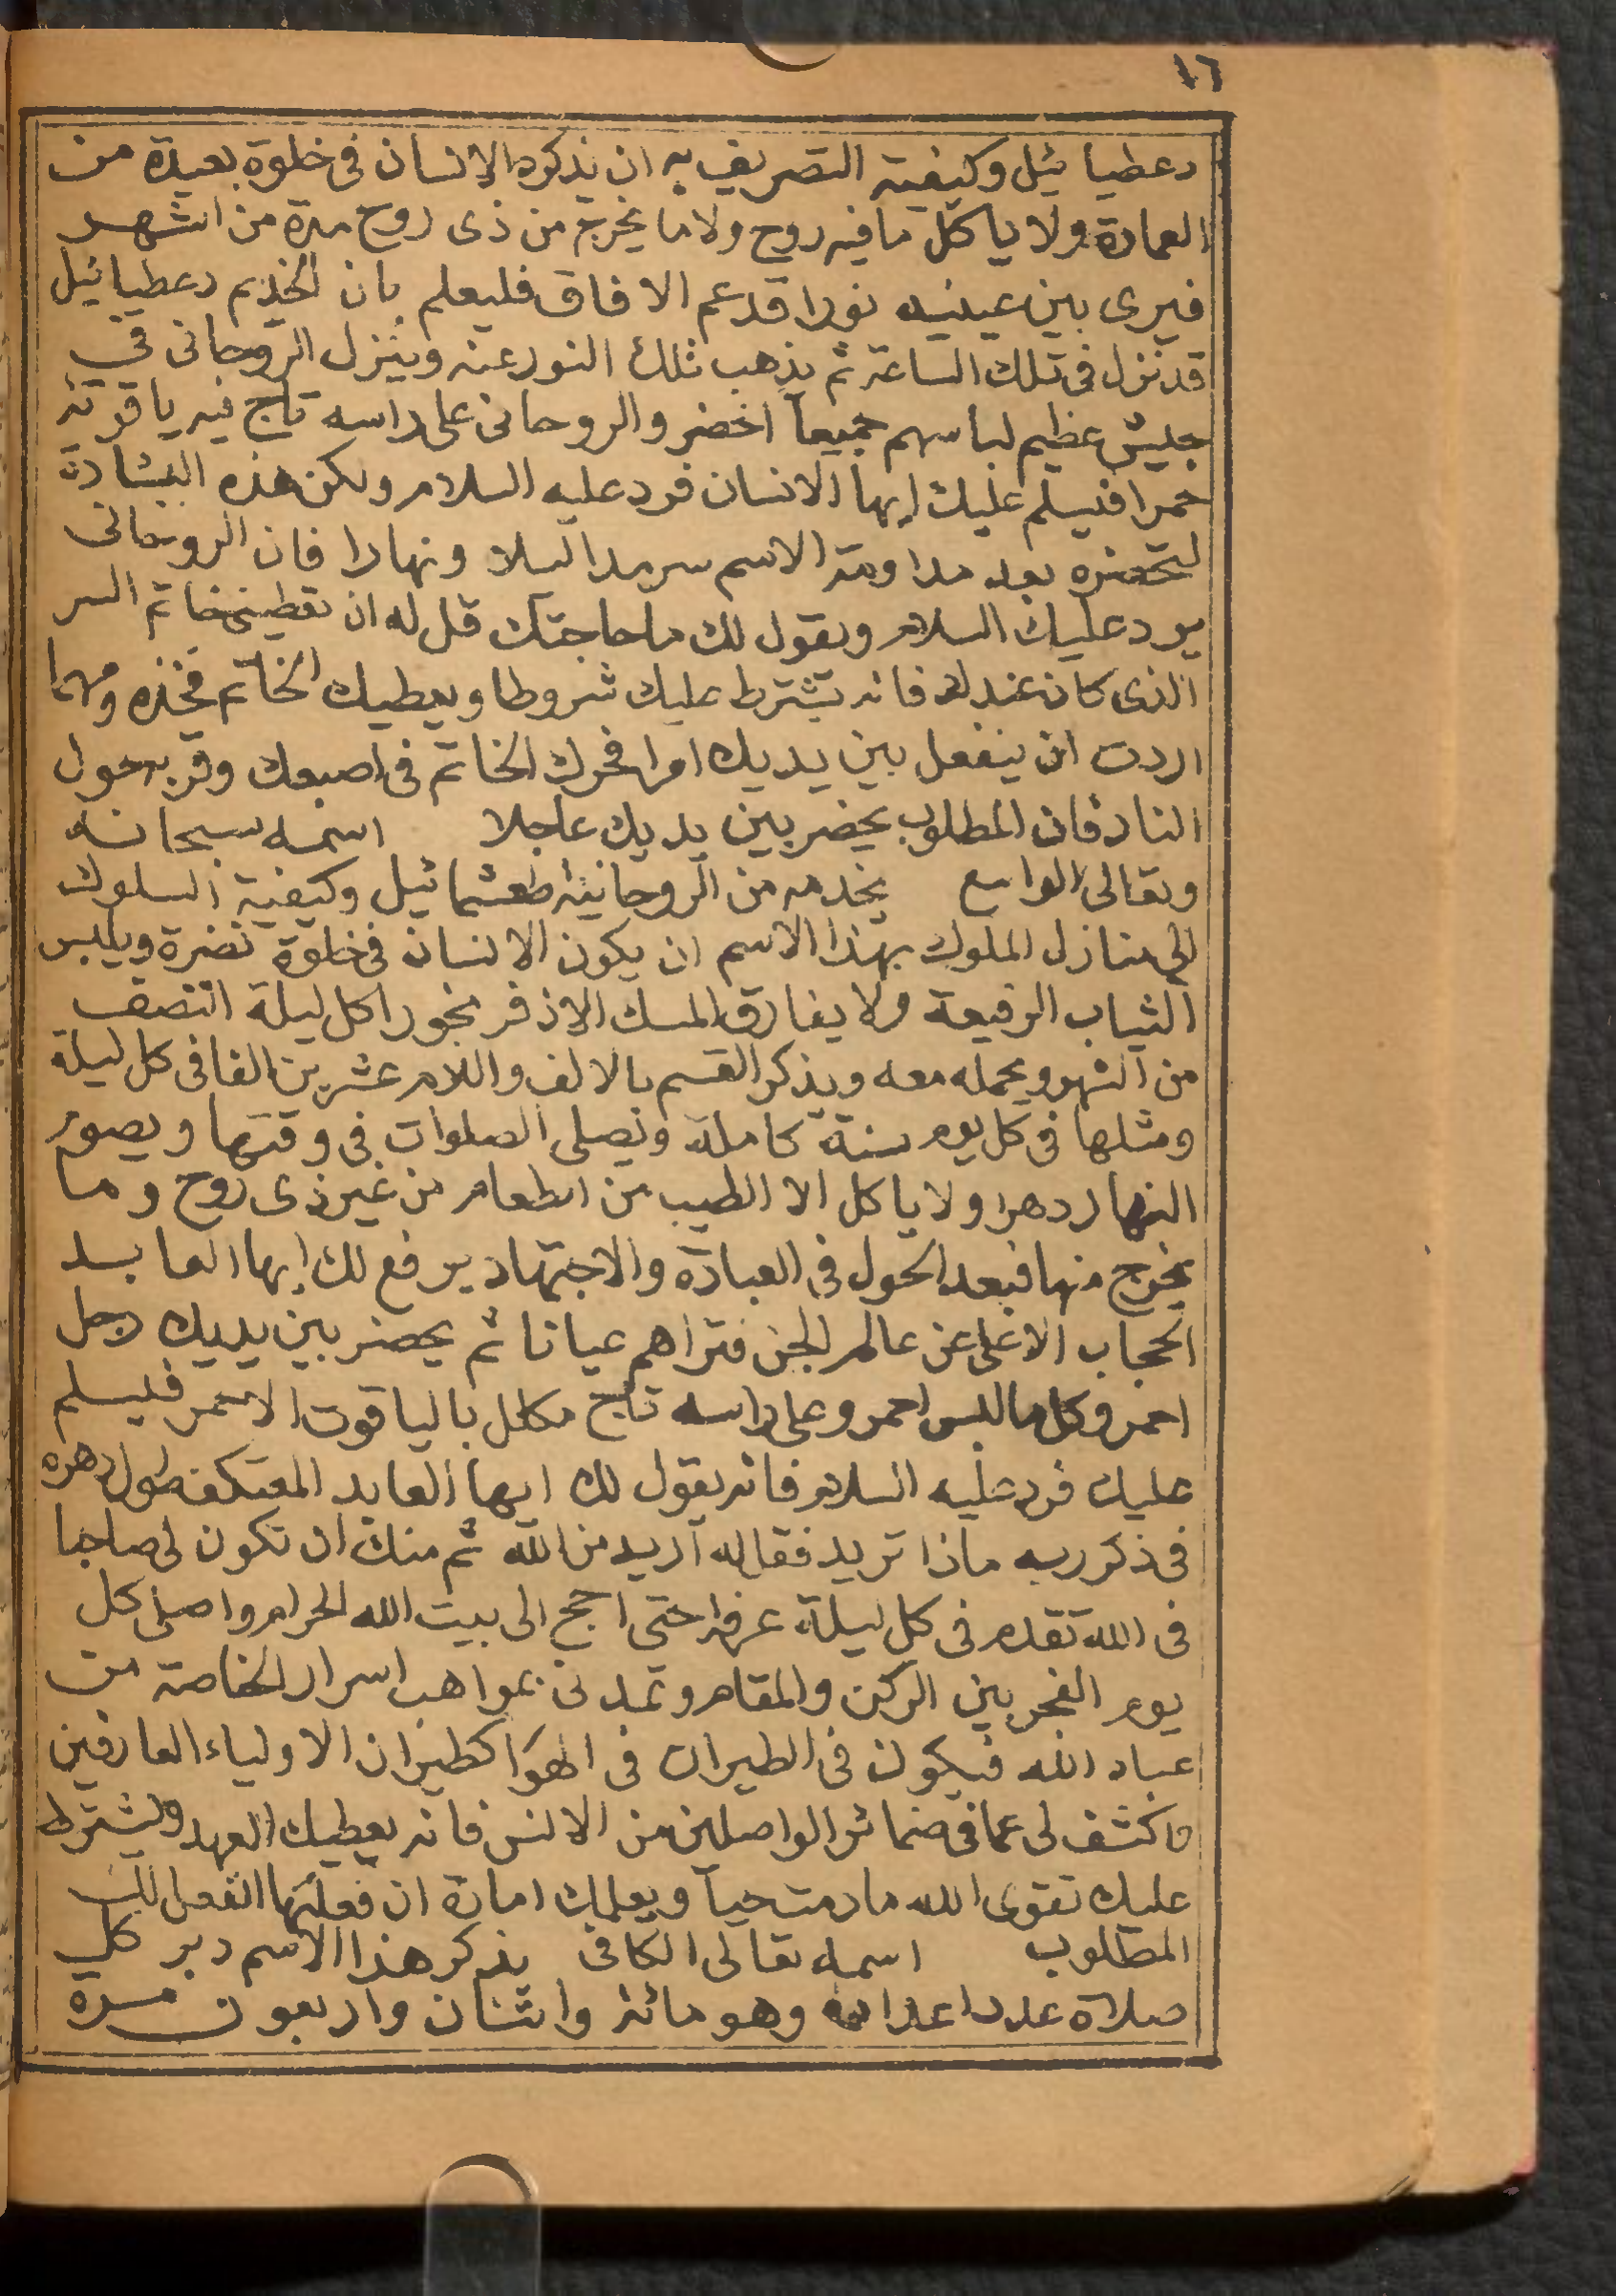 ١٦
دعطيائيل وكيفية التصريف به ان يذكره الانسان فى خلوة بعيدة من
العمارة ولا ياكل ما فيه روح ولا ما يخرج من ذى روح مدة من اشهر
فيرى بين عينيه نورا قد عم الافاق فليعلم بان الخديم دعطيائيل
قد نزل فى تلك الساعة ثم يذهب تلك النور عنه وينزل الروحانى فى
جيش عظيم لباسهم جميعا اخضر والروحانى على راسه تاج فيه ياقوتة
حمرا فيسلم عليك ايها الانسان فرد عليه السلام ولكن هذه البشارة
لتحضره بعد مداومة الاسم سرمدا ليلا ونهارا فان الروحانى
يرد عليك السلام ويقول لك ما حاجتك قل له ان تعطينى خاتم السر
الذى كان عندك فانه يشترط عليك شروطا ويعطيك الخاتم فخذه ومهما
اردت ان ينفعل بين يديك امرا فحرك الخاتم فى اصبعك وقربه حول
النار فان المطلوب يحضر بين يديك عاجلا اسمه سبحانه
وتعالى الواسع يخدمه من الروحانية طعشمائيل وكيفية السلوك
الى منازل الملوك بهذا الاسم ان يكون الانسان فى خلوة نضرة ويلبس
الثياب الرفيعة ولا يفارق المسك الاذفر بخورا كل ليلة النصف
من الشهر ويحمله معه ويذكر القسم بالالف واللام عشرين الفا فى كل ليلة
ومثلها فى كل يوم سنة كاملة ويصلى الصلوات فى وقتها ويصوم
النهار دهرا ولا ياكل الا الطيب من الطعام من غير ذى روح وما
يخرج منها فبعد الحول فى العبادة والاجتهاد يرفع لك ايها العابد
الحجاب الاعلى عن عالم الجن فتراهم عيانا ثم يحضر بين يديك رجل
احمر وكل ما لبس احمر وعلى راسه تاج مكلل بالياقوت الاحمر فيسلم
عليك فرد عليه السلام فانه يقول لك ايها العابد المعتكف طول دهره
فى ذكر ربه ماذا تريد فقاله اريد من الله ثم منك ان تكون لى صاحبا
فى الله تقدم فى كل ليلة عرفة حتى احج الى بيت الله الحرام واصلى كل
يوم الفجر بين الركن والمقام وتمدنى بمواهب اسرار الخاصة من
عباد الله فيكون فى الطيران فى الهوا كطيران الاولياء العارفين
واكشف لى عما فى ضمائر الواصلين من الانس فانه يعطيك العهد ويشترط
عليك تقوى الله ما دمت حيا ويعلمك امارة ان فعلتها انفعل لك
المطلوب اسمه تعالى الكافى يذكر هذا الاسم دبر كل
صلاة عدد اعداده وهو مائة واثنان واربعون مرة